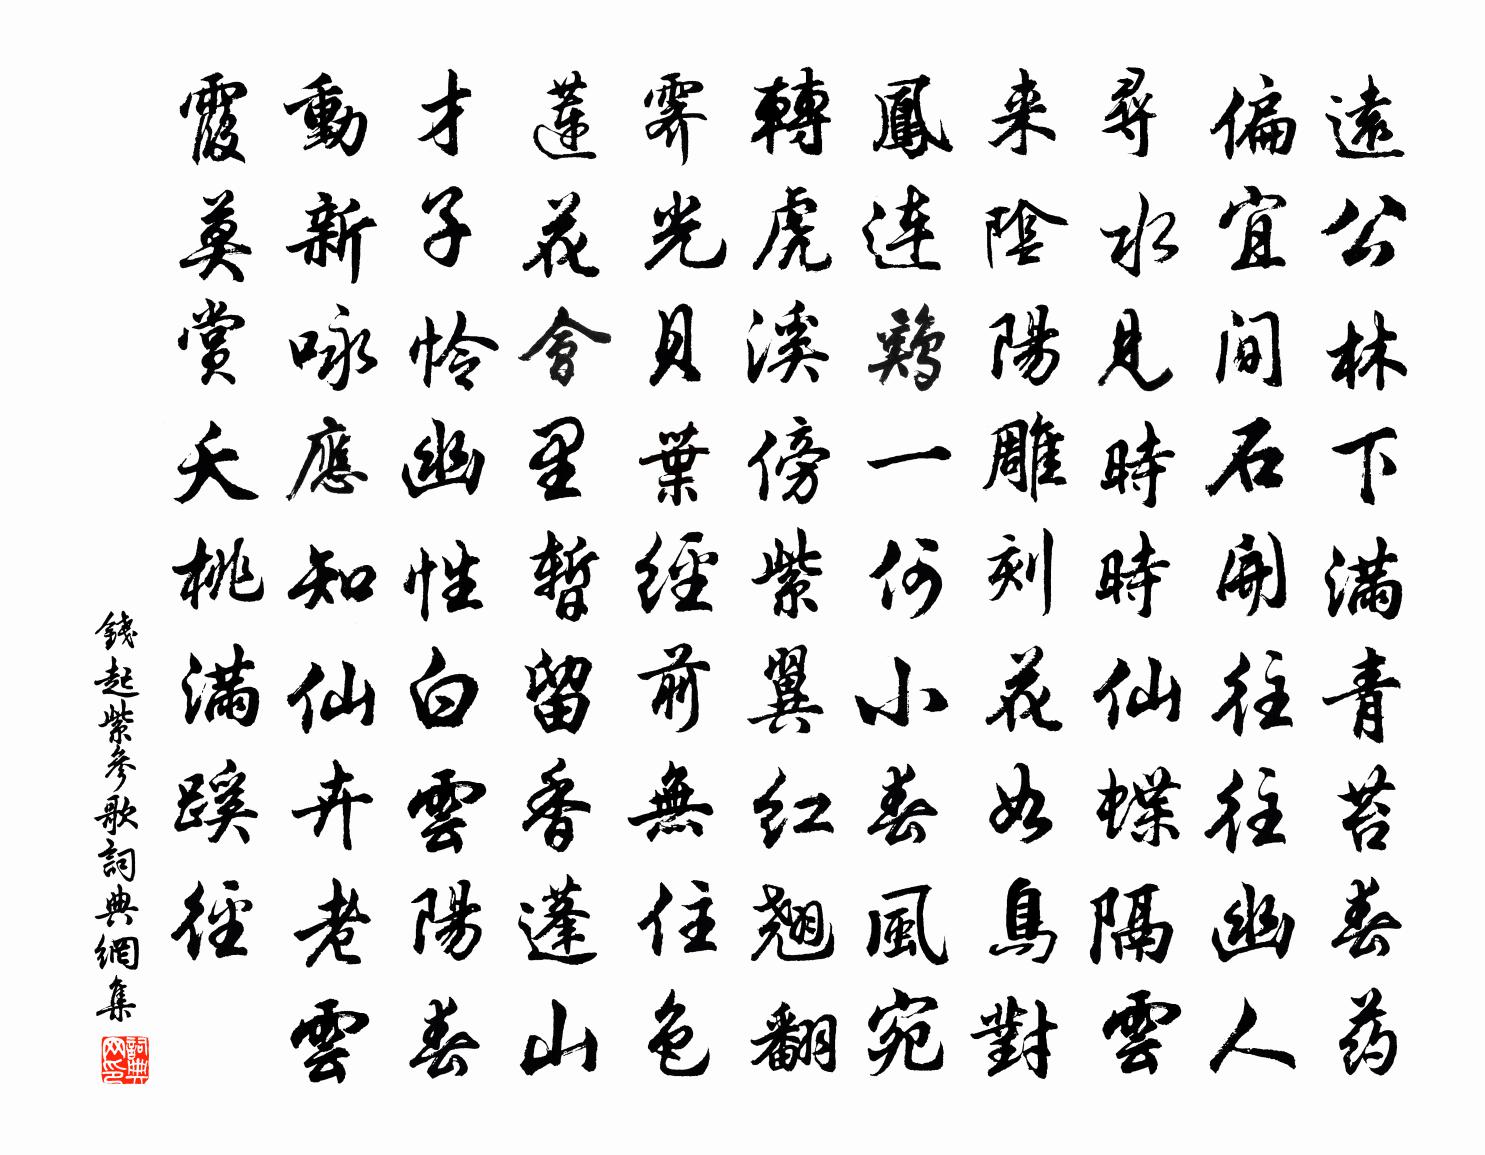 遠公林下滿青苔春药
偏宜间石開往往幽人
尋水見時時仙蝶隔雲
来陰陽雕刻花如鳥對
鳳連鷄一何小春風宛
轉虎溪傍紫翼紅翘翻
霽光貝葉經前無住色
蓮花會里暫留香蓬山
才子怜幽性白雲陽春
動新咏應知仙卉老雲
霞莫賞夭桃滿蹊徑
錢起紫参歌詞典網集
詞典网印